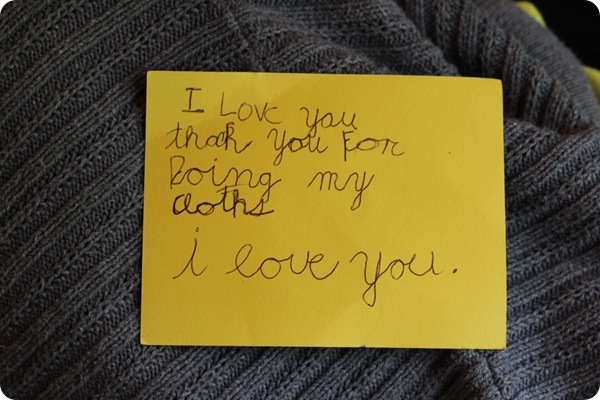 I Love you
thank you For
Doing my
cloths
i love you.